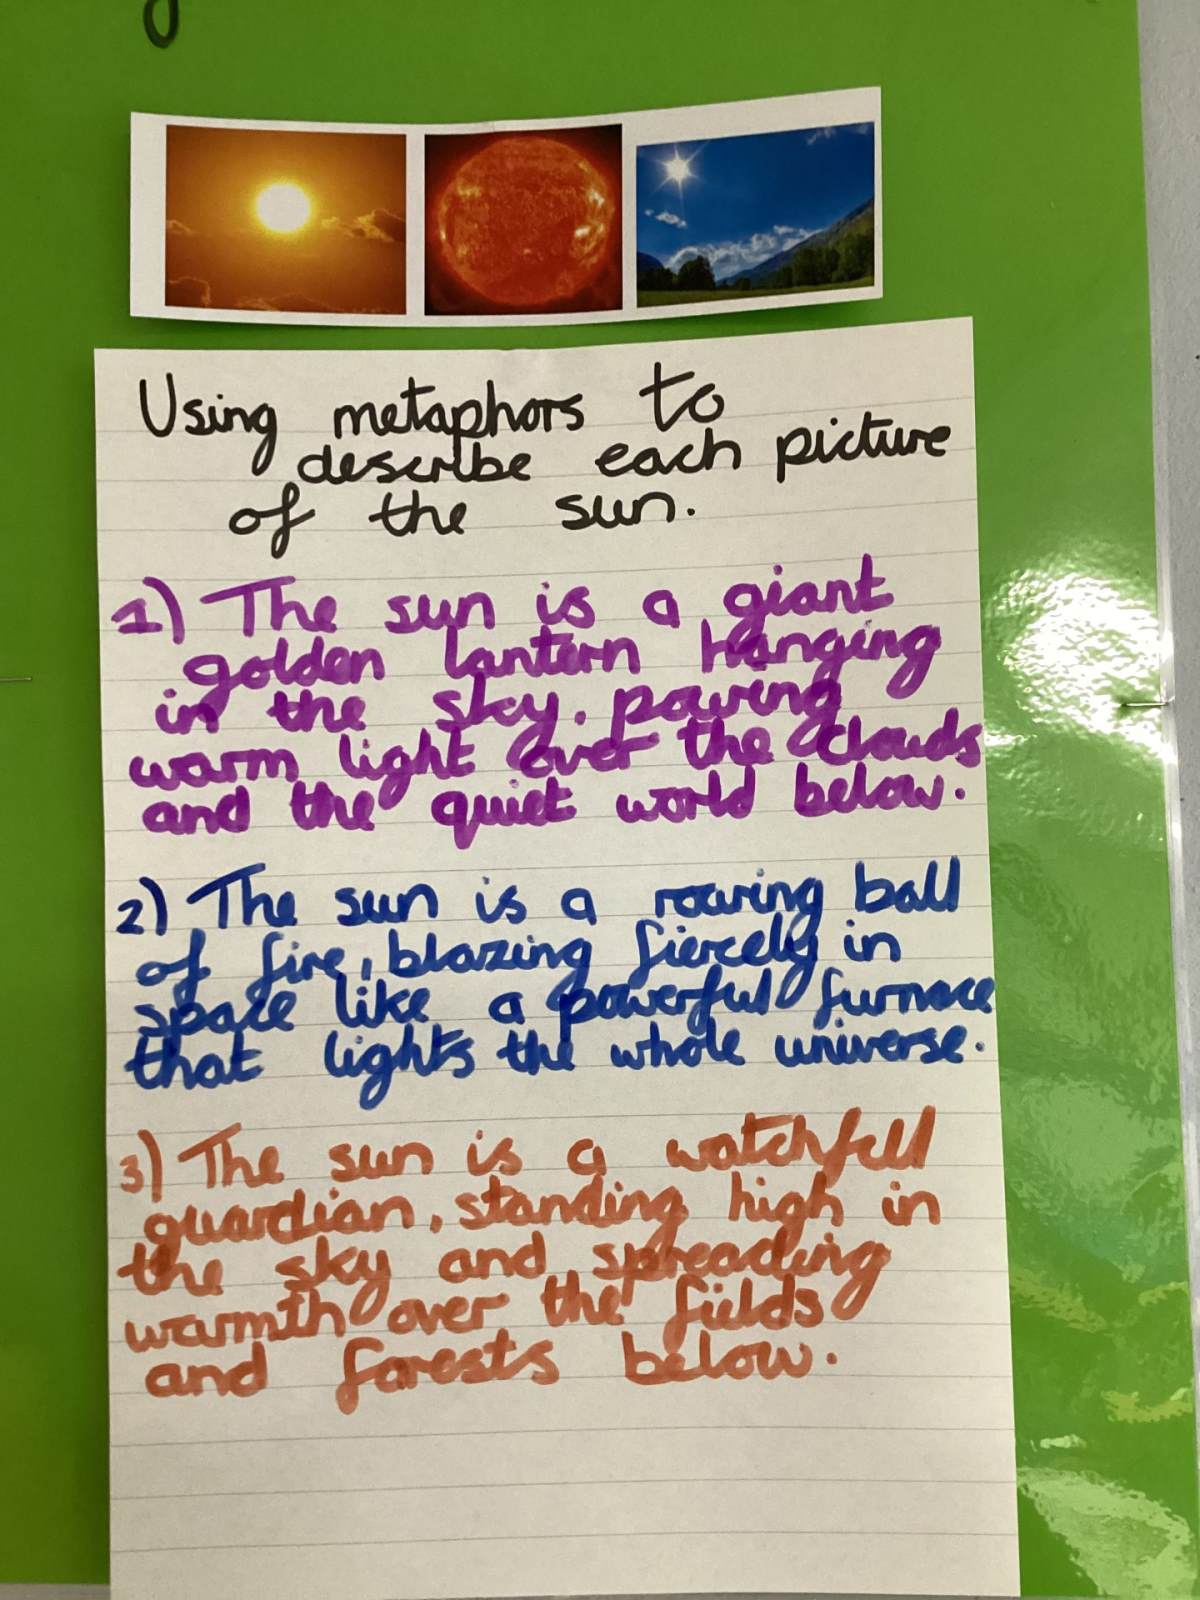 Using metaphors to
describe each picture
of the sun.
1) The sun is a giant
golden lantern hanging
in the sky, pouring
warm light over the clouds
and the quiet world below.
2) The sun is a roaring ball
of fire, blazing fiercely in
space like a powerful furnace
that lights the whole universe.
3) The sun is a watchfull
guardian, standing high in
the sky and spreading
warmth over the fields
and forests below.